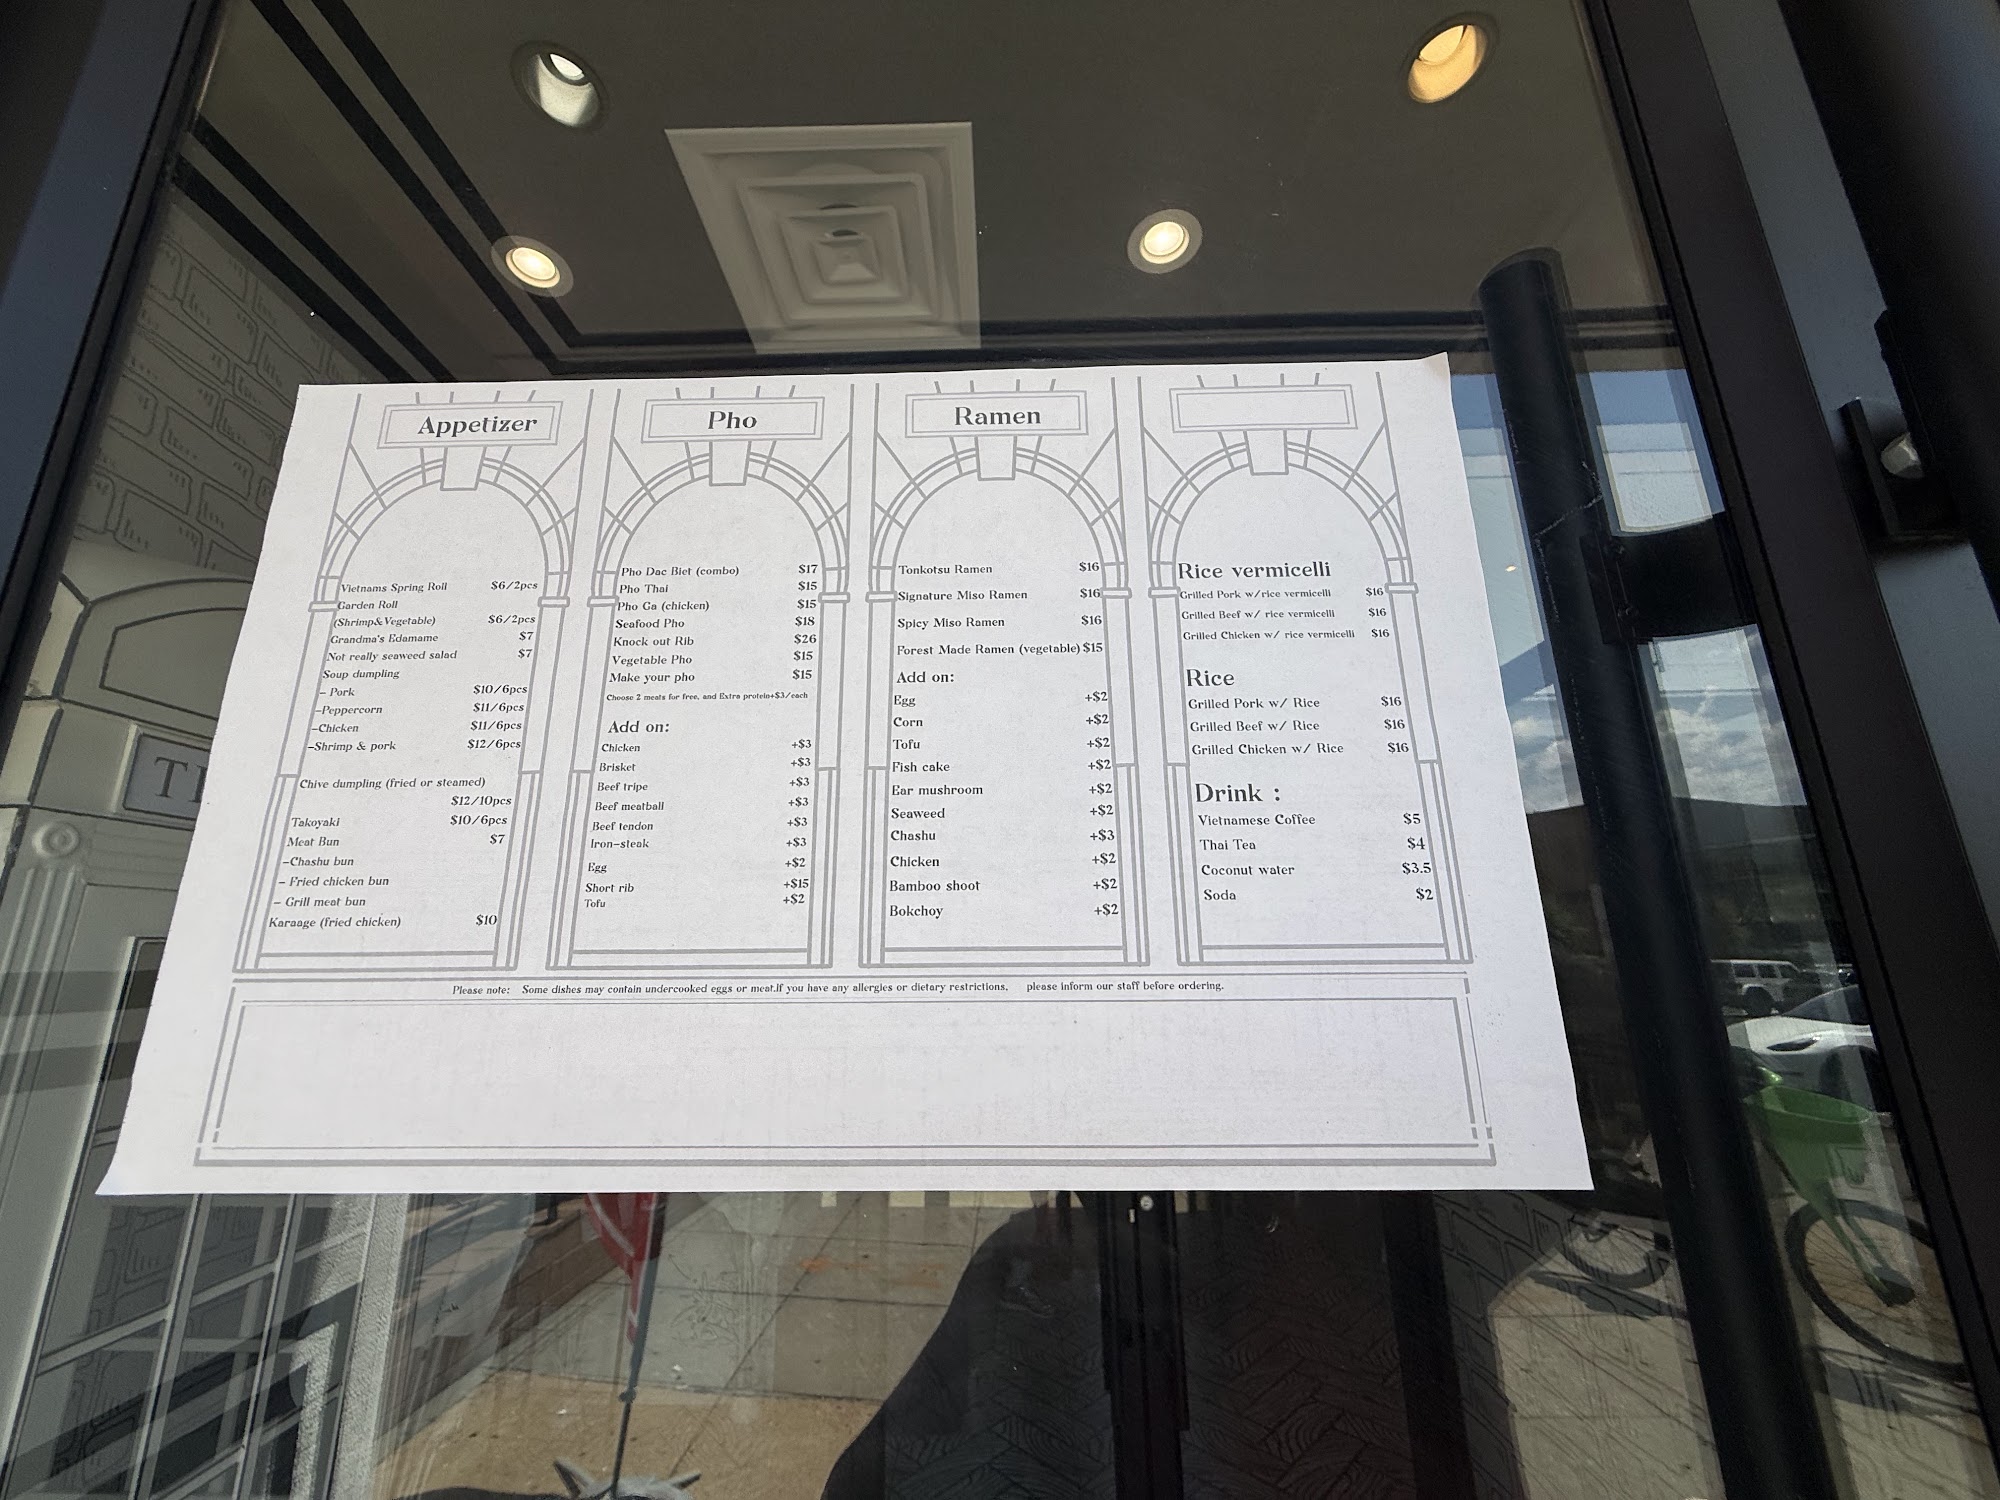 Appetizer
Vietnams Spring Roll $6/2pcs
Garden Roll
(Shrimp&Vegetable) $6/2pcs
Grandma's Edamame $7
Not really seaweed salad $7
Soup dumpling
- Pork $10/6pcs
-Peppercorn $11/6pcs
-Chicken $11/6pcs
-Shrimp & pork $12/6pcs
Chive dumpling (fried or steamed)
$12/10pcs
Takoyaki $10/6pcs
Meat Bun $7
-Chashu bun
- Fried chicken bun
- Grill meat bun
Karaage (fried chicken) $10
Pho
Pho Dac Biet (combo) $17
Pho Thai $15
Pho Ga (chicken) $15
Seafood Pho $18
Knock out Rib $26
Vegetable Pho $15
Make your pho $15
Choose 2 meats for free, and Extra protein+$3/each
Add on:
Chicken +$3
Brisket +$3
Beef tripe +$3
Beef meatball +$3
Beef tendon +$3
Iron-steak +$3
Egg +$2
Short rib +$15
Tofu +$2
Ramen
Tonkotsu Ramen $16
Signature Miso Ramen $16
Spicy Miso Ramen $16
Forest Made Ramen (vegetable) $15
Add on:
Egg +$2
Corn +$2
Tofu +$2
Fish cake +$2
Ear mushroom +$2
Seaweed +$2
Chashu +$3
Chicken +$2
Bamboo shoot +$2
Bokchoy +$2
Rice vermicelli
Grilled Pork w/rice vermicelli $16
Grilled Beef w/ rice vermicelli $16
Grilled Chicken w/ rice vermicelli $16
Rice
Grilled Pork w/ Rice $16
Grilled Beef w/ Rice $16
Grilled Chicken w/ Rice $16
Drink :
Vietnamese Coffee $5
Thai Tea $4
Coconut water $3.5
Soda $2
Please note: Some dishes may contain undercooked eggs or meat.If you have any allergies or dietary restrictions, please inform our staff before ordering.